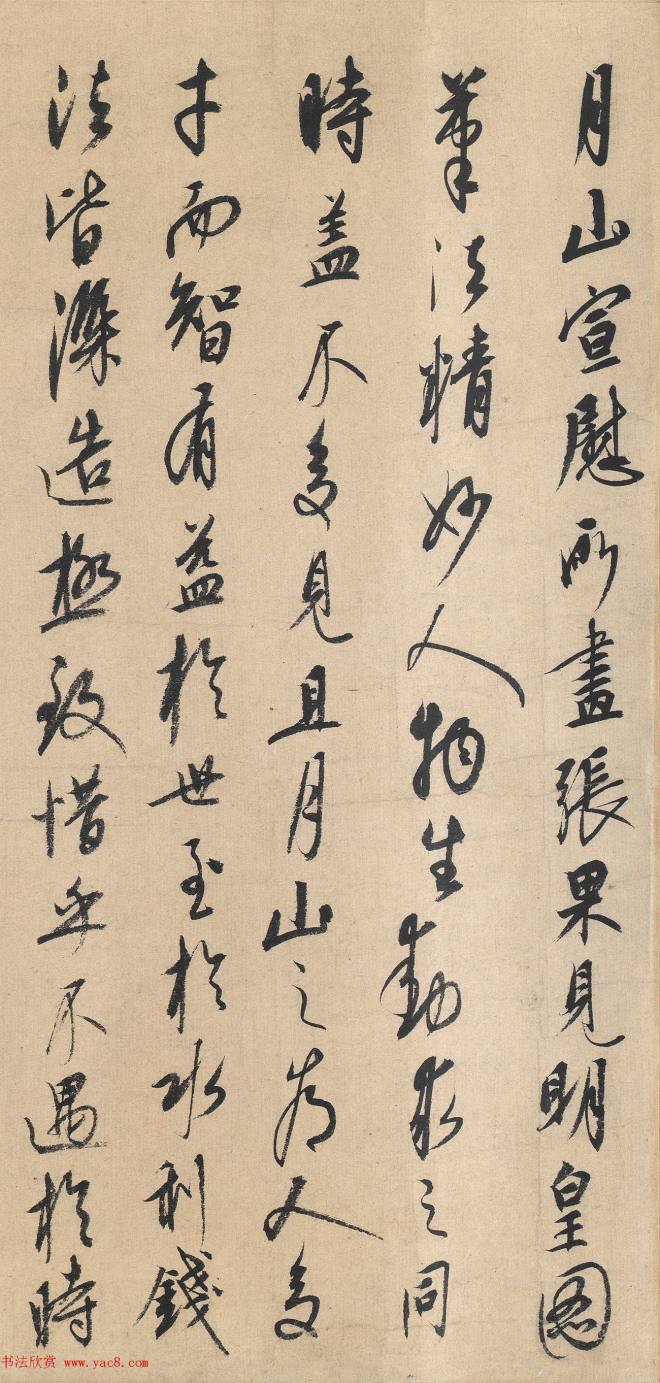 月山宣慰所畫張果見明皇圖
筆法精妙人物生動求之同
時盖不多見且月山之為人多
才而智有益於世至於水利錢
法皆深造極致惜乎不遇於時
书法欣赏 www.yac8.com